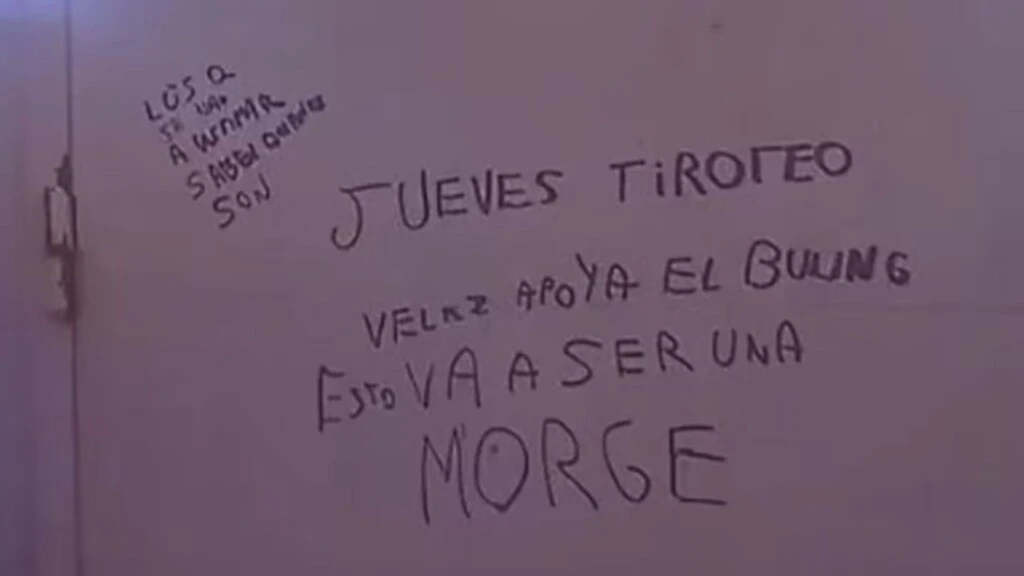 LOS Q
SE VAN
A
SABEN QUIENES
SON
JUEVES TiROTEO
VELAZ APOYA EL BULING
ESTO VA A SER UNA
MORGE